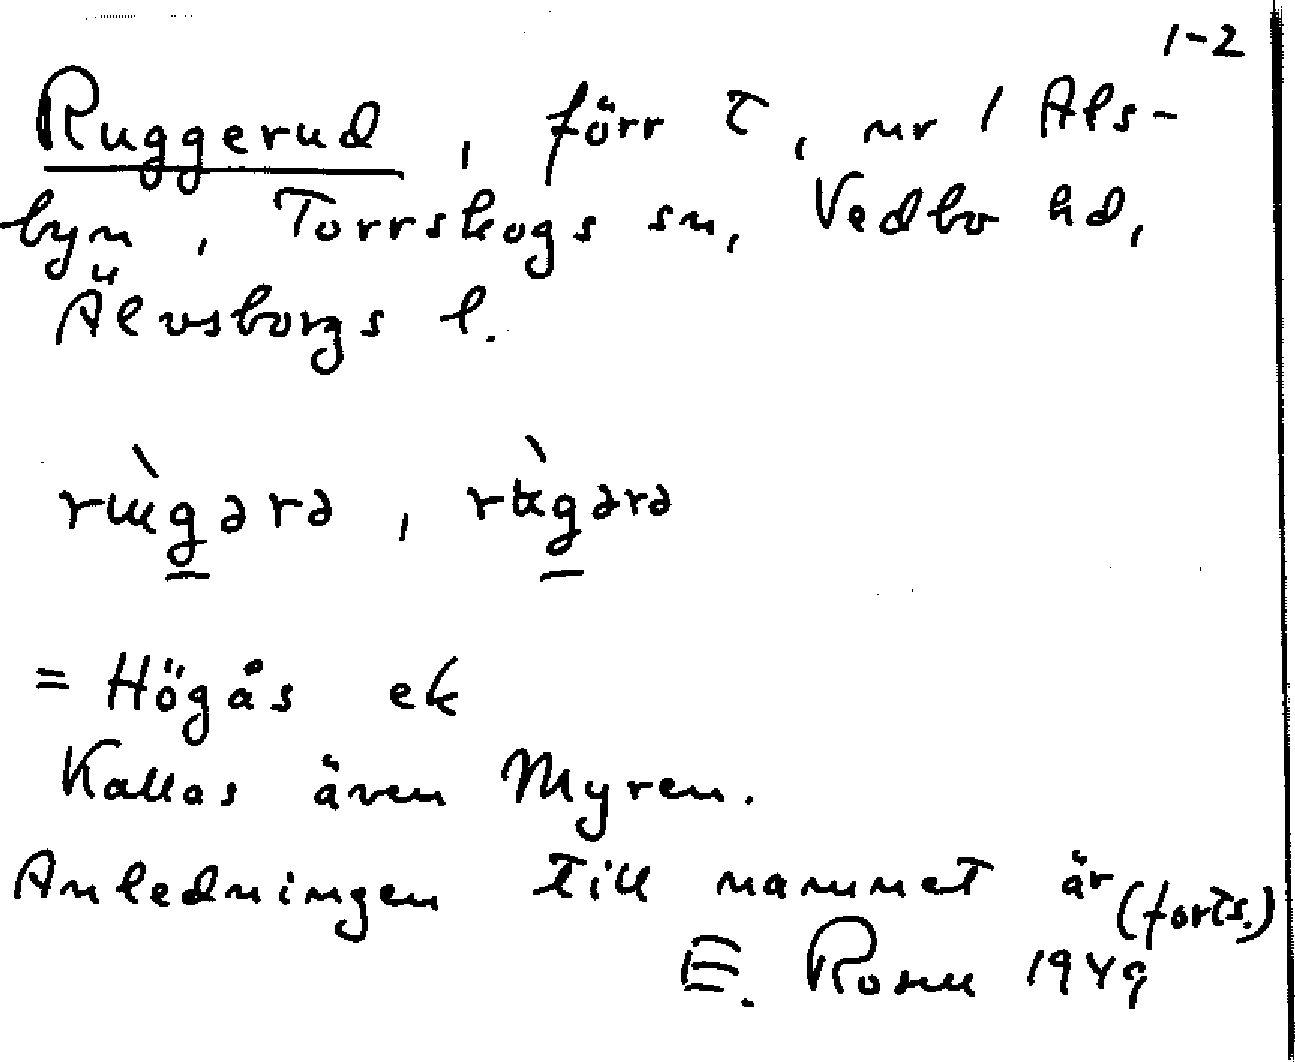 1-2
Ruggerud, förr t, nr 1 Als-
byn, Torrskogs sn, Vedbo hd,
Älvsborgs l.
= Högås ek
Kallas även Myren.
Anledningen till namnet är (forts.)
E. Rosell 1949